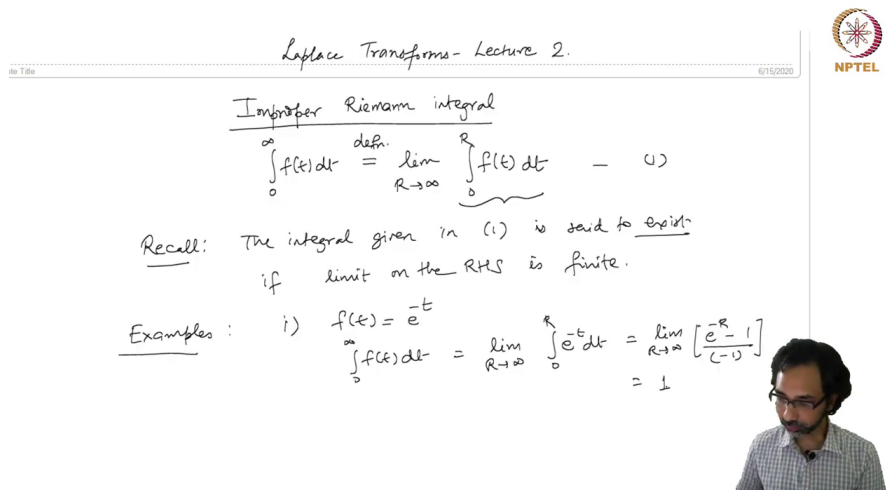 Laplace Transforms - Lecture 2.
NPTEL
ote Title
6/15/2020
Improper Riemann integral
∫₀^∞ f(t) dt defn. = lim R→∞ ∫₀^R f(t) dt — (1)
Recall: The integral given in (1) is said to exist
if limit on the RHS is finite.
Examples: i) f(t) = e^{-t}
∫₀^∞ f(t) dt = lim R→∞ ∫₀^R e^{-t} dt = lim R→∞ [ (e^{-R} - 1) / (-1) ]
= 1